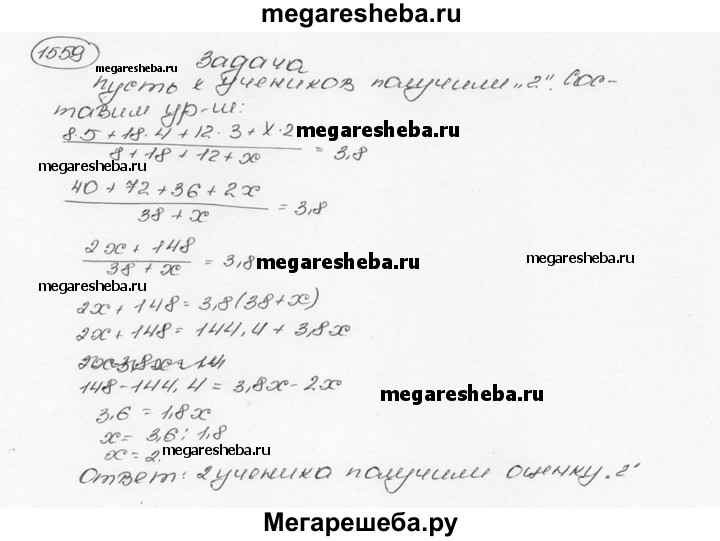 megaresheba.ru
1559
megaresheba.ru
Задача
Пусть х учеников получили „2". Сос-
тавим ур-ие:
8·5 + 18·4 + 12·3 + х·2 / 8 + 18 + 12 + х = 3,8
megaresheba.ru
megaresheba.ru
40 + 72 + 36 + 2х / 38 + х = 3,8
2х + 148 / 38 + х = 3,8
megaresheba.ru
megaresheba.ru
megaresheba.ru
2х + 148 = 3,8(38+х)
2х + 148 = 144,4 + 3,8х
148 - 144,4 = 3,8х - 2х
megaresheba.ru
3,6 = 1,8х
х = 3,6 : 1,8
х = 2.
megaresheba.ru
Ответ: 2 ученика получили оценку „2"
Мегарешеба.ру